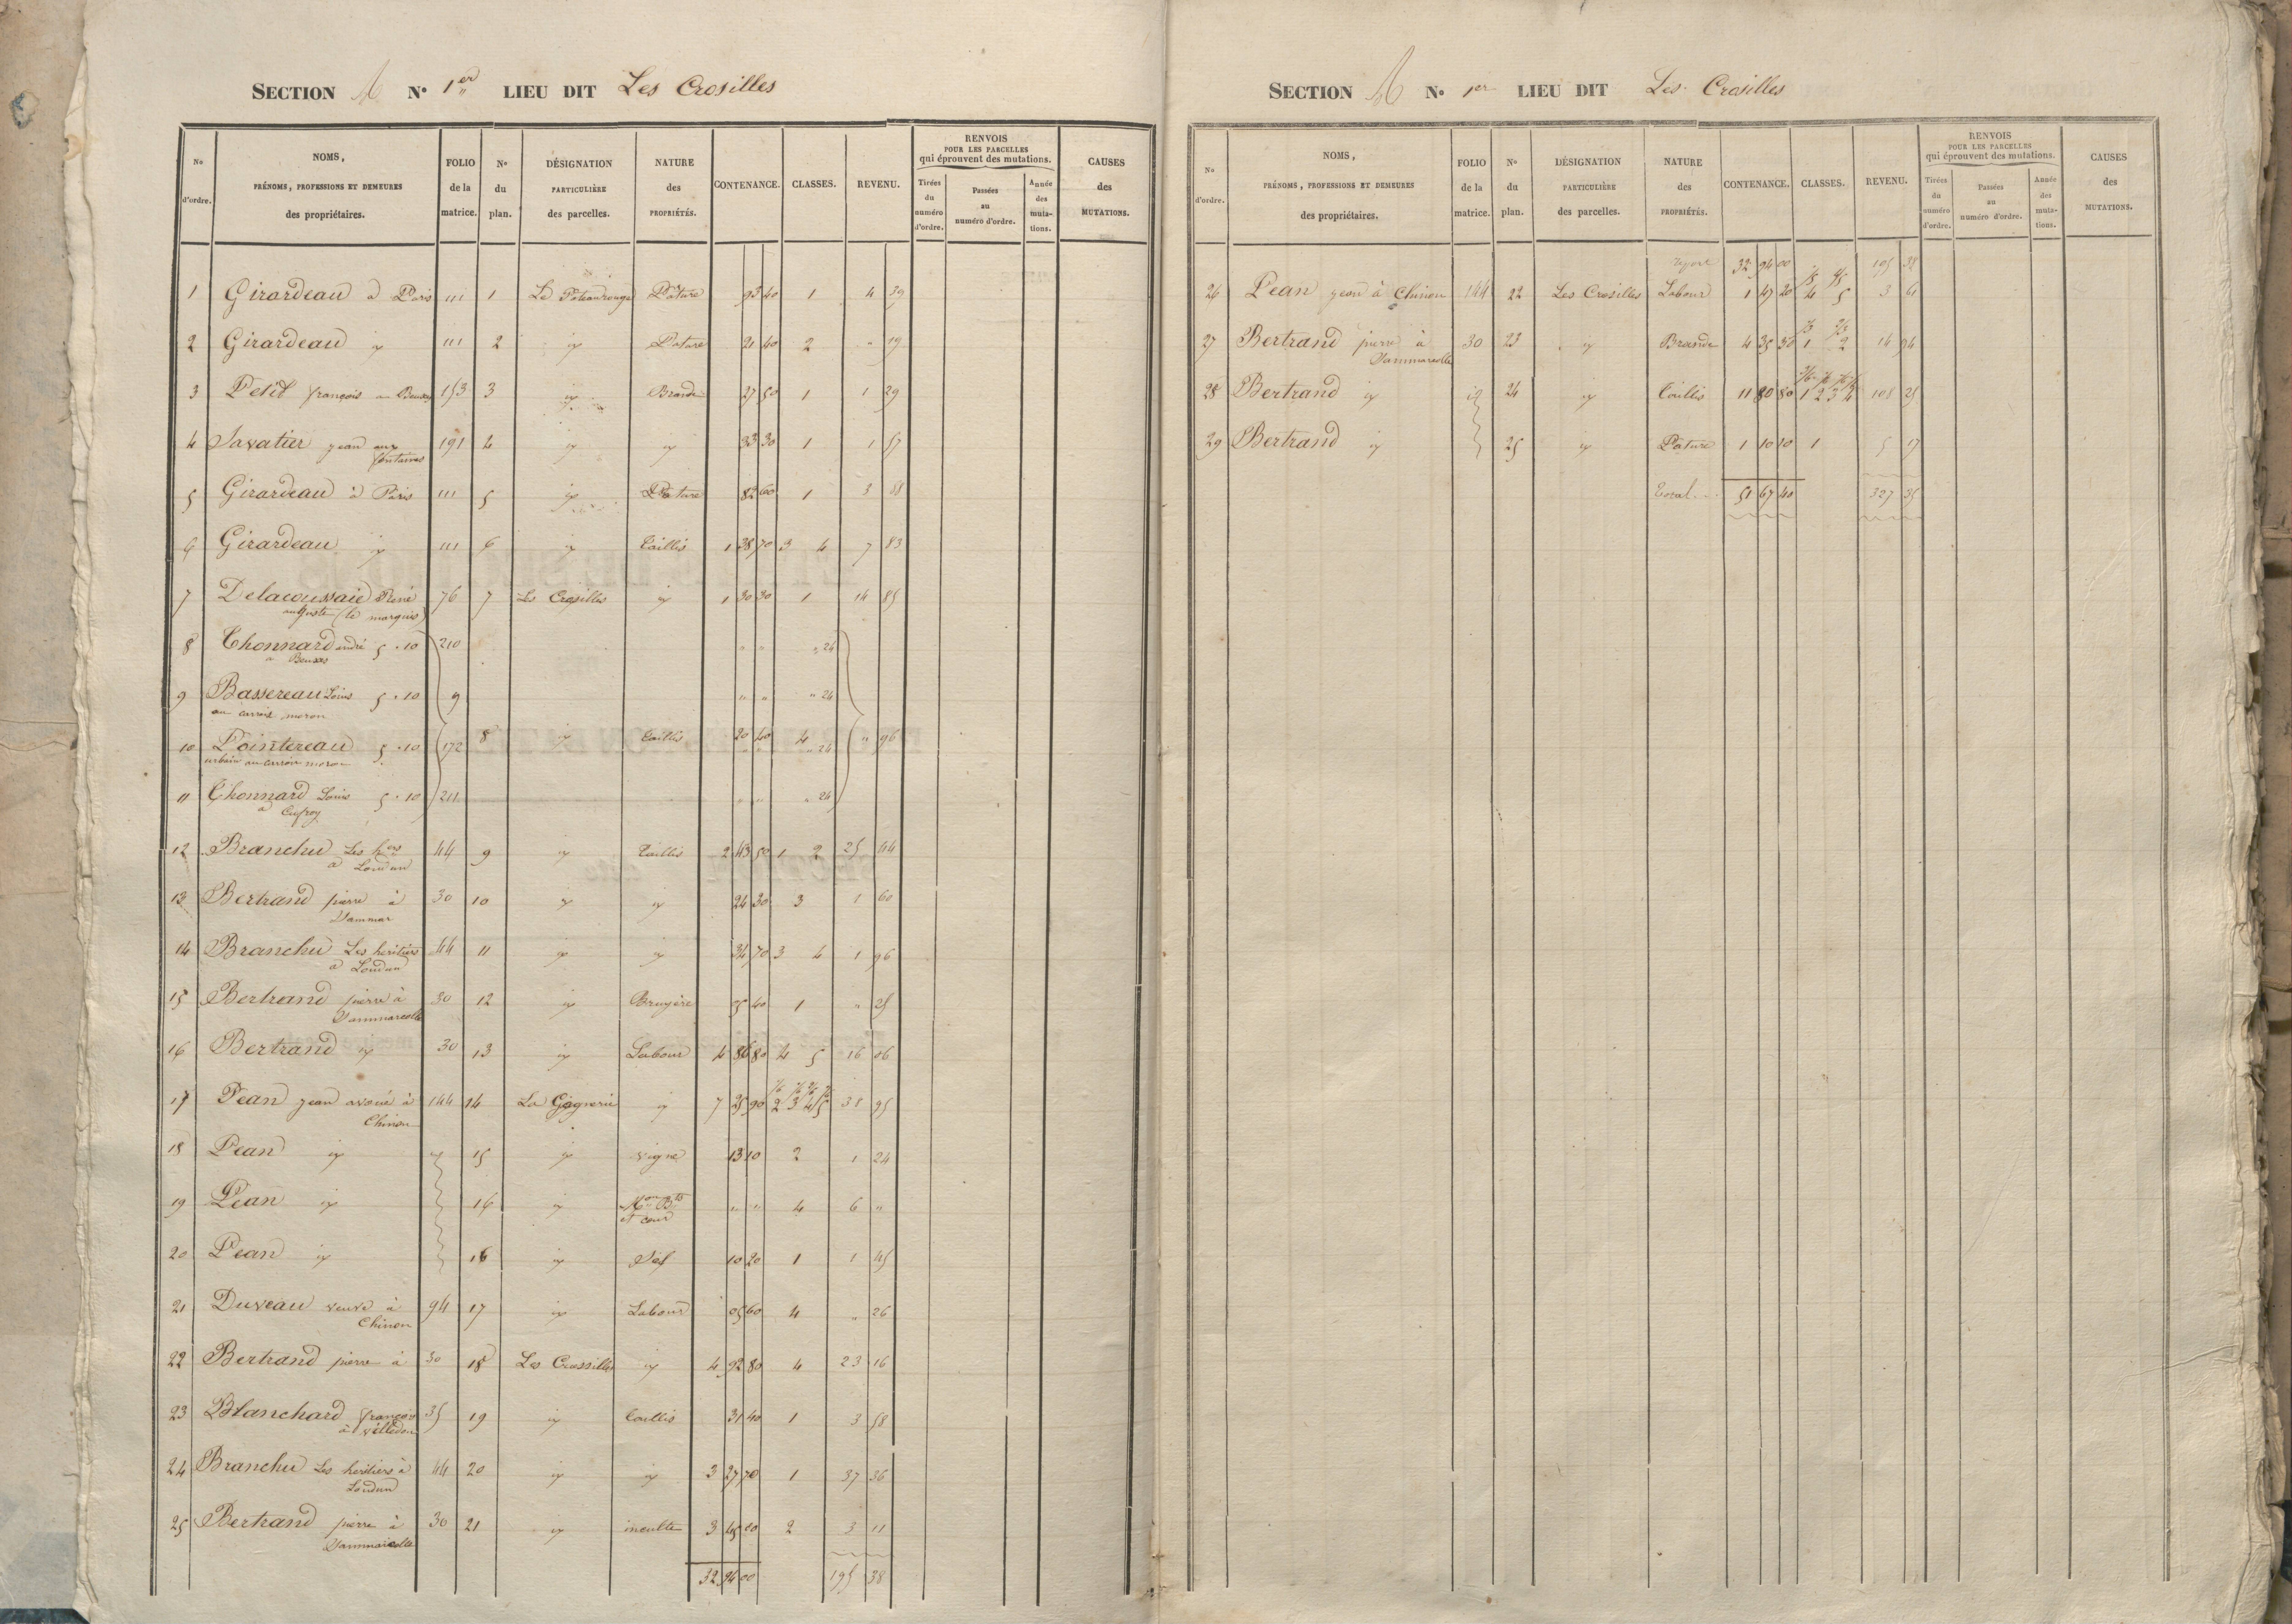 SECTION A N° 1er LIEU DIT Les Crosilles
N° d'ordre.
NOMS, PRÉNOMS, PROFESSIONS ET DEMEURES des propriétaires.
FOLIO de la matrice.
N° du plan.
DÉSIGNATION PARTICULIÈRE des parcelles.
NATURE des PROPRIÉTÉS.
CONTENANCE.
CLASSES.
REVENU.
RENVOIS POUR LES PARCELLES qui éprouvent des mutations.
Tirées du numéro d'ordre.
Passées au numéro d'ordre.
Année des mutations.
CAUSES des MUTATIONS.
1 Girardeau à Paris 111 1 Pature 93 40 1 4 39
2 Girardeau id 111 2 id Pature 21 40 2 " 19
3 Petit françois a Beuxes 153 3 id Brande 27 50 1 1 29
4 Savatier jean aux fontaines 191 4 id id 33 30 1 1 57
5 Girardeau à Paris 111 5 id Pature 82 60 1 3 88
6 Girardeau id 111 6 id Taillis 1 38 70 3 4 7 83
7 Delacoussaie René auguste (le marquis) 76 7 Les Crosilles id 1 30 30 1 14 85
8 Thonnard andré a Beuxes 5 . 10 210 " " " 24
9 Bassereau Louis au carroi moron 5 . 10 9 " " " 24
10 Pointereau urbain au carroi moron 5 . 10 172 8 id Taillis 20 40 4 " 24 " 96
11 Thonnard Louis a 5 . 10 211 " " " 24
12 Branchu Les hers a Loudun 44 9 id Taillis 2 43 50 1 2 25 44
13 Bertrand pierre à Dammar 30 10 id id 24 30 3 1 60
14 Branchu Les heritiers a Loudun 44 11 id id 34 70 3 4 1 96
15 Bertrand pierre à Dammarcolle 30 12 id Bruyère 25 40 1 " 25
16 Bertrand id 30 13 id Labour 4 86 80 4 5 16 06
17 Pean jean avoué à Chinon 144 14 La Gagnerie id 7 25 90 2 3 4 5 38 95
18 Pean id id 15 id vigne 13 10 2 1 24
19 Pean id 16 id Mon Bts et cour " " 4 6 "
20 Pean id 16 id Sol 10 20 1 1 45
21 Duveau veuve à Chinon 94 17 id Labour 05 60 4 " 26
22 Bertrand pierre à 30 18 Les Crossilles id 4 92 80 4 23 16
23 Blanchard françois à 35 19 id Taillis 31 40 1 3 58
24 Branchu Les heritiers à Loudun 44 20 id id 3 27 70 1 37 36
25 Bertrand pierre à Dammarcolle 30 21 id inculte 3 45 00 2 3 11
32 94 00 195 38
SECTION A N° 1er LIEU DIT Les Crosilles
N° d'ordre.
NOMS, PRÉNOMS, PROFESSIONS ET DEMEURES des propriétaires.
FOLIO de la matrice.
N° du plan.
DÉSIGNATION PARTICULIÈRE des parcelles.
NATURE des PROPRIÉTÉS.
CONTENANCE.
CLASSES.
REVENU.
RENVOIS POUR LES PARCELLES qui éprouvent des mutations.
Tirées du numéro d'ordre.
Passées au numéro d'ordre.
Année des mutations.
CAUSES des MUTATIONS.
report 32 94 00 195 38
26 Pean jean à Chinon 144 22 Les Crosilles Labour 1 47 20 4 5 3 61
27 Bertrand pierre à Dammarcolle 30 23 id Brande 4 35 30 1 2 14 94
28 Bertrand id id 24 id Taillis 11 80 80 1 2 3 4 108 25
29 Bertrand id 25 id Pature 1 10 10 1 5 17
Total 51 67 40 327 35